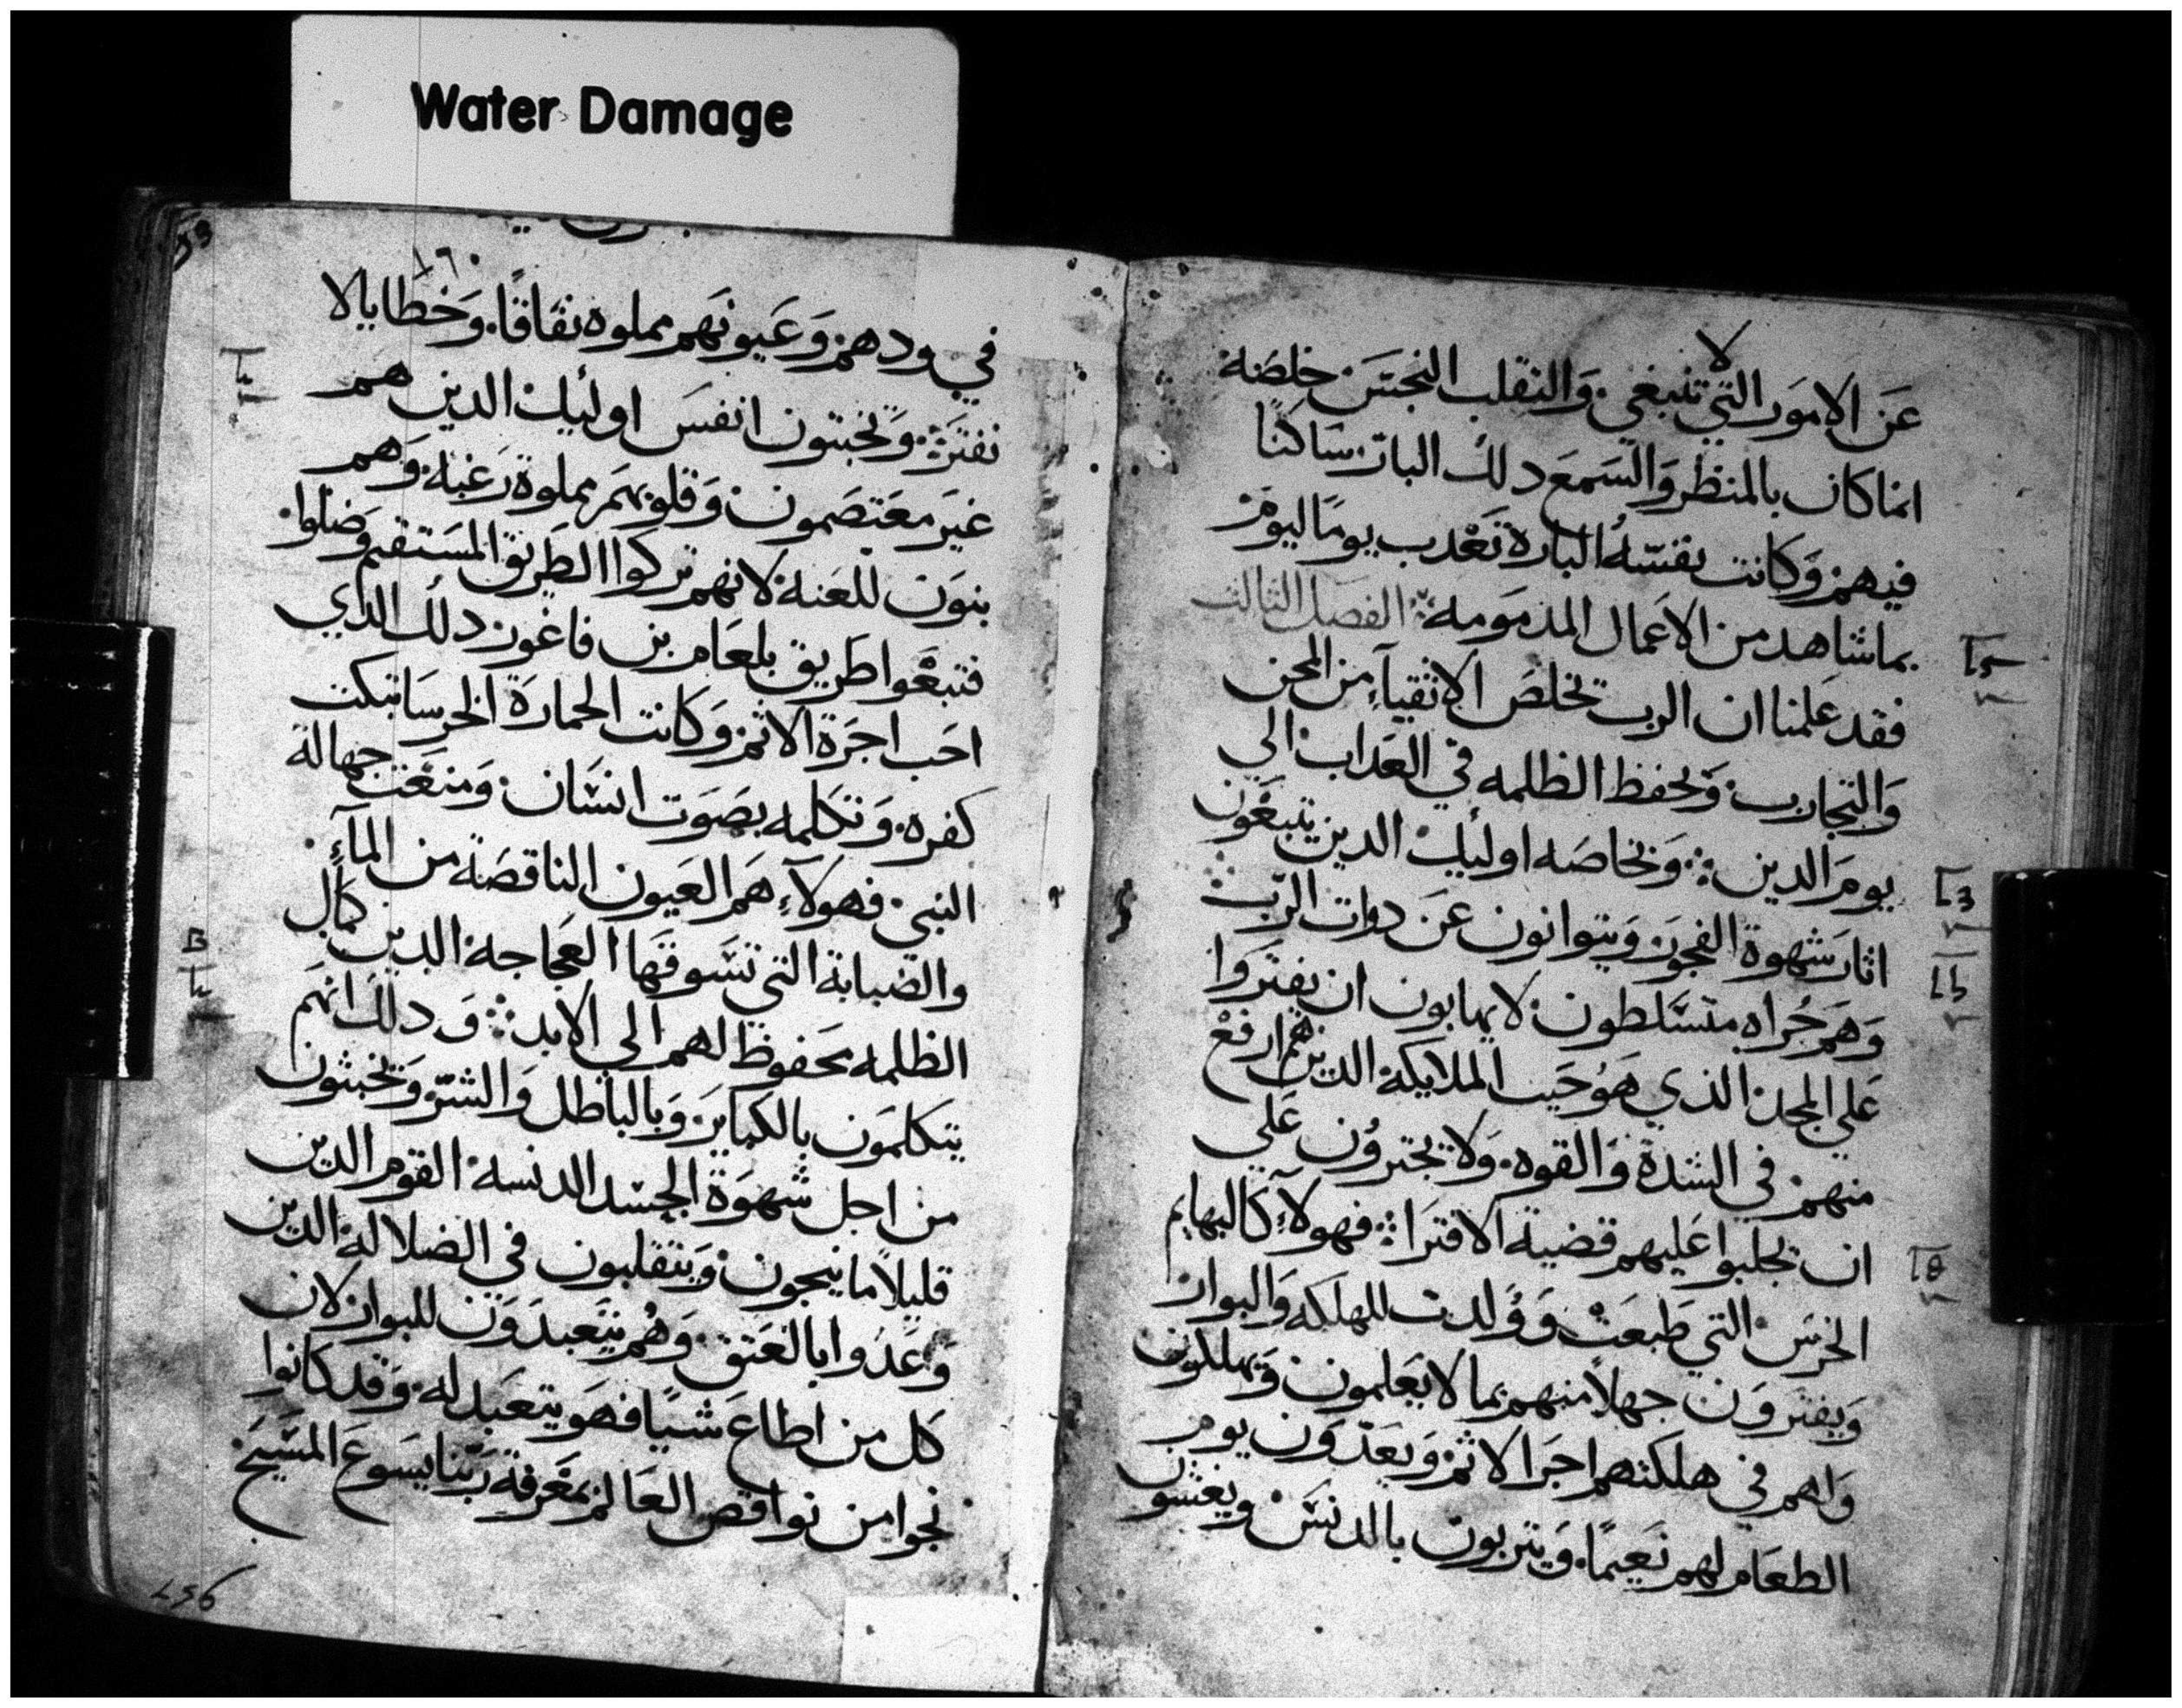 Water Damage
لا
عَن الامور التي تنبغي. وَالتقلب النجسَ خلصَه
انما كان بالمنظر وَالسَمع دلك البار سَاكنًا
فيهم وَكانت نفسَهُ البارة تعَدب يومًا ليوم
بما شاهد من الاعَمال المدمومه ܀ الفصل الثالت
فقد عَلمنا ان الرب تخلصَ الاتقيآء من المحن
وَالتجارب وَيحفظ الظلمه في العَداب الي
يومَ الدين ܀ وَبخاصَه اوليك الدين يتبعَون
اثار شهوة الفجوَر وَيتوانون عَن دوات الرّب
وَهَم جُراه متسَلطون لا يهابون ان يفترَوا
عَلي المجد الذي هوُ حَيت الملايكة الدين هم ارفعَ
منهم في الشدة وَالقوه. وَلا يجترؤن عَلى
ان يجلبوا عَليهم قضية الافترَا ܀ فهولآءِ كالبهايم
الخرسَ التي طبعَت وَوُلدت للهلكه وَالبوار
وَيفترَوَن جهلاً منهم بما لا يعَلمون وَيهلكون
وَاهم في هلكتهم اجرَ الاثم وَيعَدّوَن يوم
الطعَام لهم نعَيمًا. وَيتربون بالدنسَ ويعَشون
١٦٠
في ودهم. وَعَيونهَم مملوه نفاقًا. وَخطايا لا
تفترَة ܀ وَيخبتون انفسَ اوليك الدين هم
غيرَ معَتصَمون وَقلوبهَم مملوة رَغبَة. وَهم
بنوَن للعَنة لانهم تركوا الطرَيق المسَتقيم وَضلوا.
فتبعَوا طرَيق بلعَام بن فاغوَر دلك الدي
احَب اجرَة الاثم وَكانت الحمارَة الخرسَا تبكت
كفره. وَتكلمه بصَوَت انسَان. وَمنعَت جهالة
النبي. فهولآءِ همَ العَيون الناقصَة من المآءِ.
والضبابة التي تسَوقهَا العَجاجة الدين كمال
الظلمه محَفوظ لهم الي الابد ܀ وَدلك انهَم
يتكلمَون بالكبايرَ وَبالباطل وَالشرّ وَيخبثون
من اجل شهوَة الجسَد الدنسة القوم الدين
قليلاً ما ينجون. وَيتقلبون في الضلالة الدين
وَعَدُوا بالعَتق. وَهُم يتعَبدَوَن للبوار لان
كل من اطاع شيًا فهوَ يتعَبد له. وَقد كانوا
نجوا من نواقص العَالم بمعَرفة رَبّنا يسَوع المسَيحَ